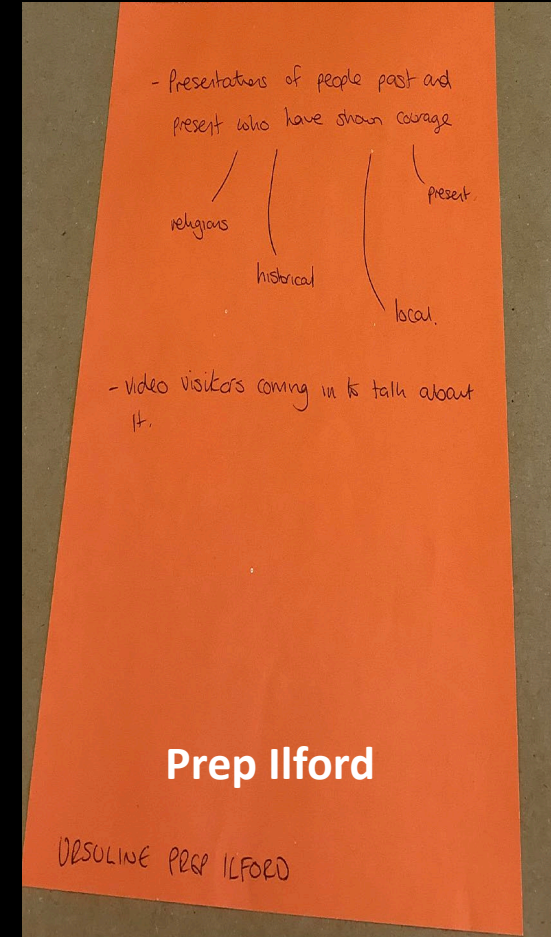 - Presentations of people past and
present who have shown courage
present.
religious
historical
local.
- video visitors coming in to talk about
it.
Prep Ilford
URSULINE PREP ILFORD